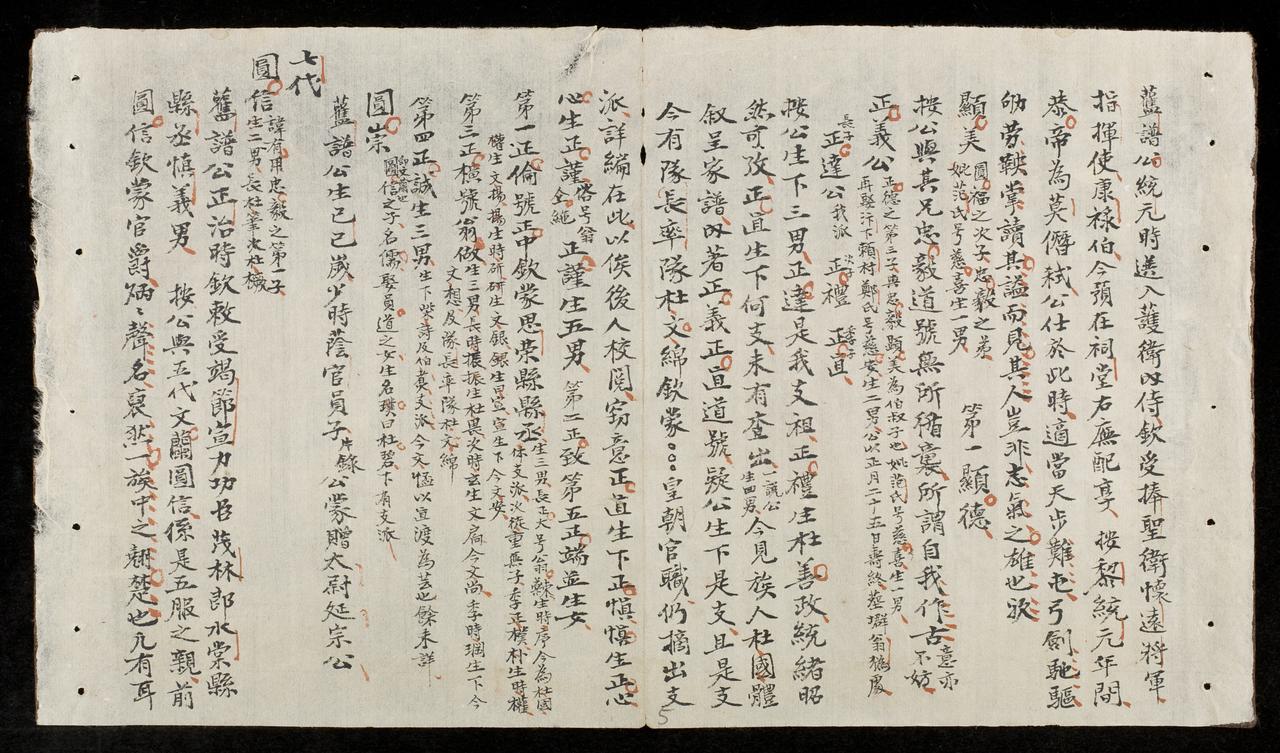 舊譜公統元時選入護衛內侍欽受捧聖衛懷遠將軍
指揮使康祿伯今預在祠堂右廡配享 按黎統元年間
恭帝為莫僭弒公仕於此時適當天步難屯弓劍馳驅
劬勞鞅掌讀其謚而見其人豈非志氣之雄也歟
顯美 圓福之次子忠毅之弟 妣范氏号慈喜生一男 第一顯德
按公與其兄忠毅道號無所循裏所謂自我作古意亦不妨
正義公 正德之第三子與忠毅顯美為伯叔子也妣范氏号慈喜生一男
再娶汴下賴村鄭氏号慈安生二男公以正月二十五日壽終墓壩翁
長子正達公 我派 次子正禮 季子正直
按公生下三男正達是我支祖正禮生杜善政統緒昭
然可攷正直生下何支未有查出一說公生四男今見族人杜國體
叙呈家譜內著正義正直道號疑公生下是支且是支
今有隊長率隊杜文綿欽蒙皇朝官職仍摘出支
派詳編在此以俟後人校閱窃意正直生下正慎慎生正心
心生正謹 号翁 正謹生五男 第二正致第五正端並生女
第一正倫號正中欽蒙思榮縣縣丞 生三男長正大号翁 生時序今為杜國
体支派次 重無子季正樸 朴生時權
權生文揚揚生時研研生文銀銀生男宣宣生下今文安
第三正橫號翁做 生三男長時振振生杜異次時玄生文扁今文尚季時 生下今
文想及隊長率隊杜文綿
第四正誠生三男 生下 詩及伯 支派今文 以直渡為芸也餘未詳
圓崇 圓信之子名儒娶員道之女生名 曰杜碧下有支派
舊譜公生己巳歲少時蔭官員子 錄公蒙贈太尉延宗公
七代
圓信 諱有用忠毅之第一子
生二男長杜筆次杜
舊譜公正治時欽敕受竭節宣力功臣茂林郎水棠縣
縣丞慎義男 按公與五代文 圓信係是五服之親前
圓信欽蒙官爵炳〻聲名裒然一族中之翹楚也凡有耳
5